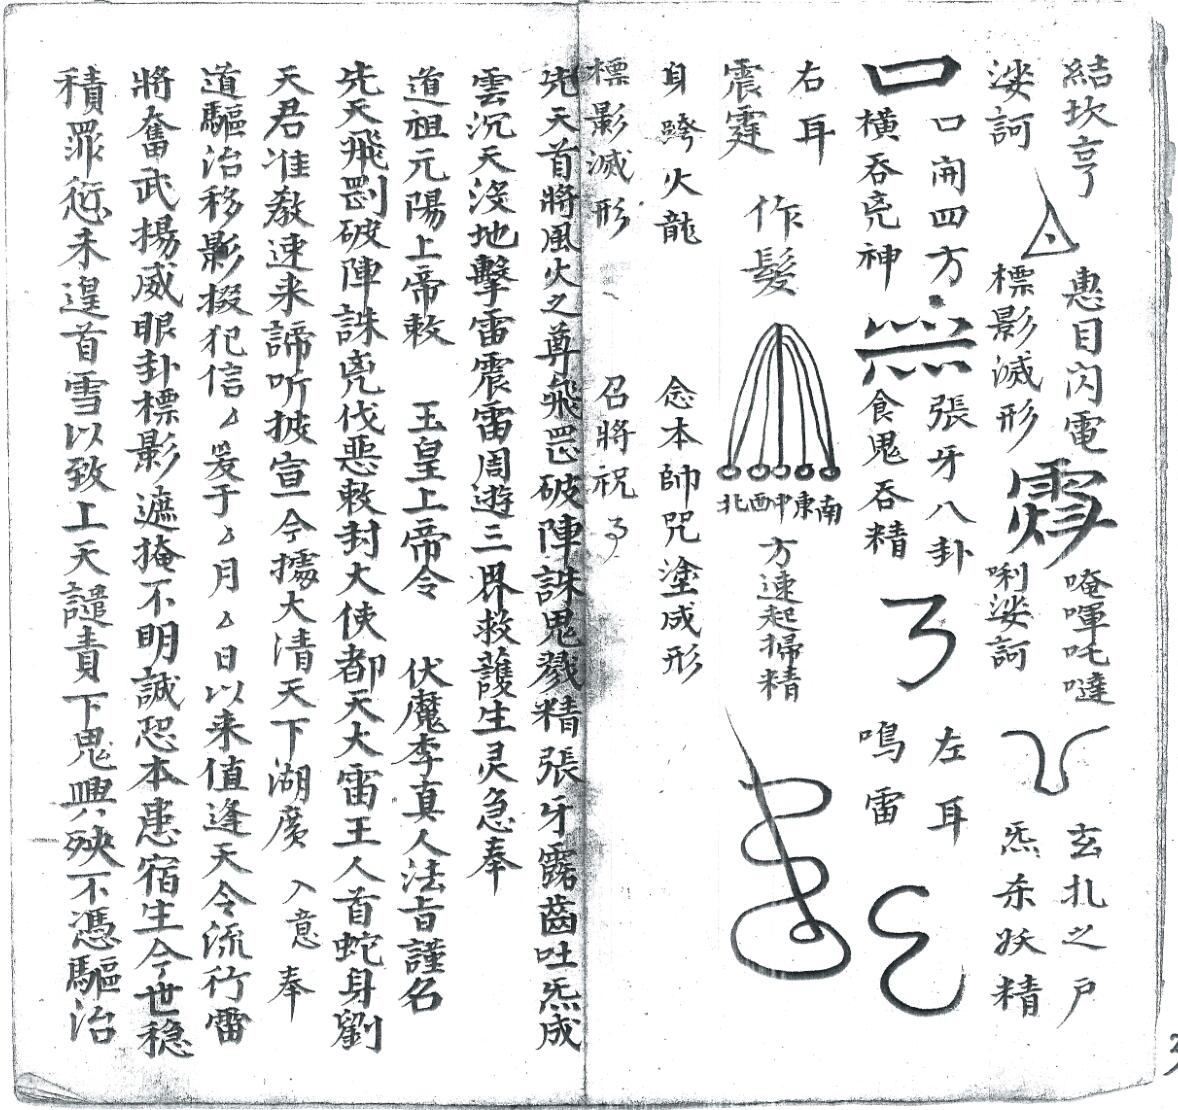 結坎亨
娑訶
惠目閃電
標影滅形
唵㖶吒噠
唎娑訶
玄扎之戶
炁杀妖精
口開四方
橫吞兇神
張牙八卦
食鬼吞精
左耳
鳴雷
右耳
震霆
作髮
北西中東南
方速起掃精
身跨火龍
念本師咒塗成形
標影滅形
召將祝
先天首將風火之尊飛罡破陣誅鬼戮精張牙露齒吐炁成
雲沉天沒地擊雷震雷周遊三界救護生灵急奉
道祖元陽上帝敕 玉皇上帝令 伏魔李真人法旨謹召
先天飛罡破陣誅兇伐惡敕封大使都天大雷王人首蛇身劉
天君准教速来諦听披宣一今據大清天下湖廣 入意 奉
道驅治移影掇犯信 爰于 月 日以来值逢天令流行雷
將奮武揚威眼卦標影遮掩不明誠恐本患宿生今世稳
積罪愆未遑首雪以致上天譴責下鬼興殃不憑驅治